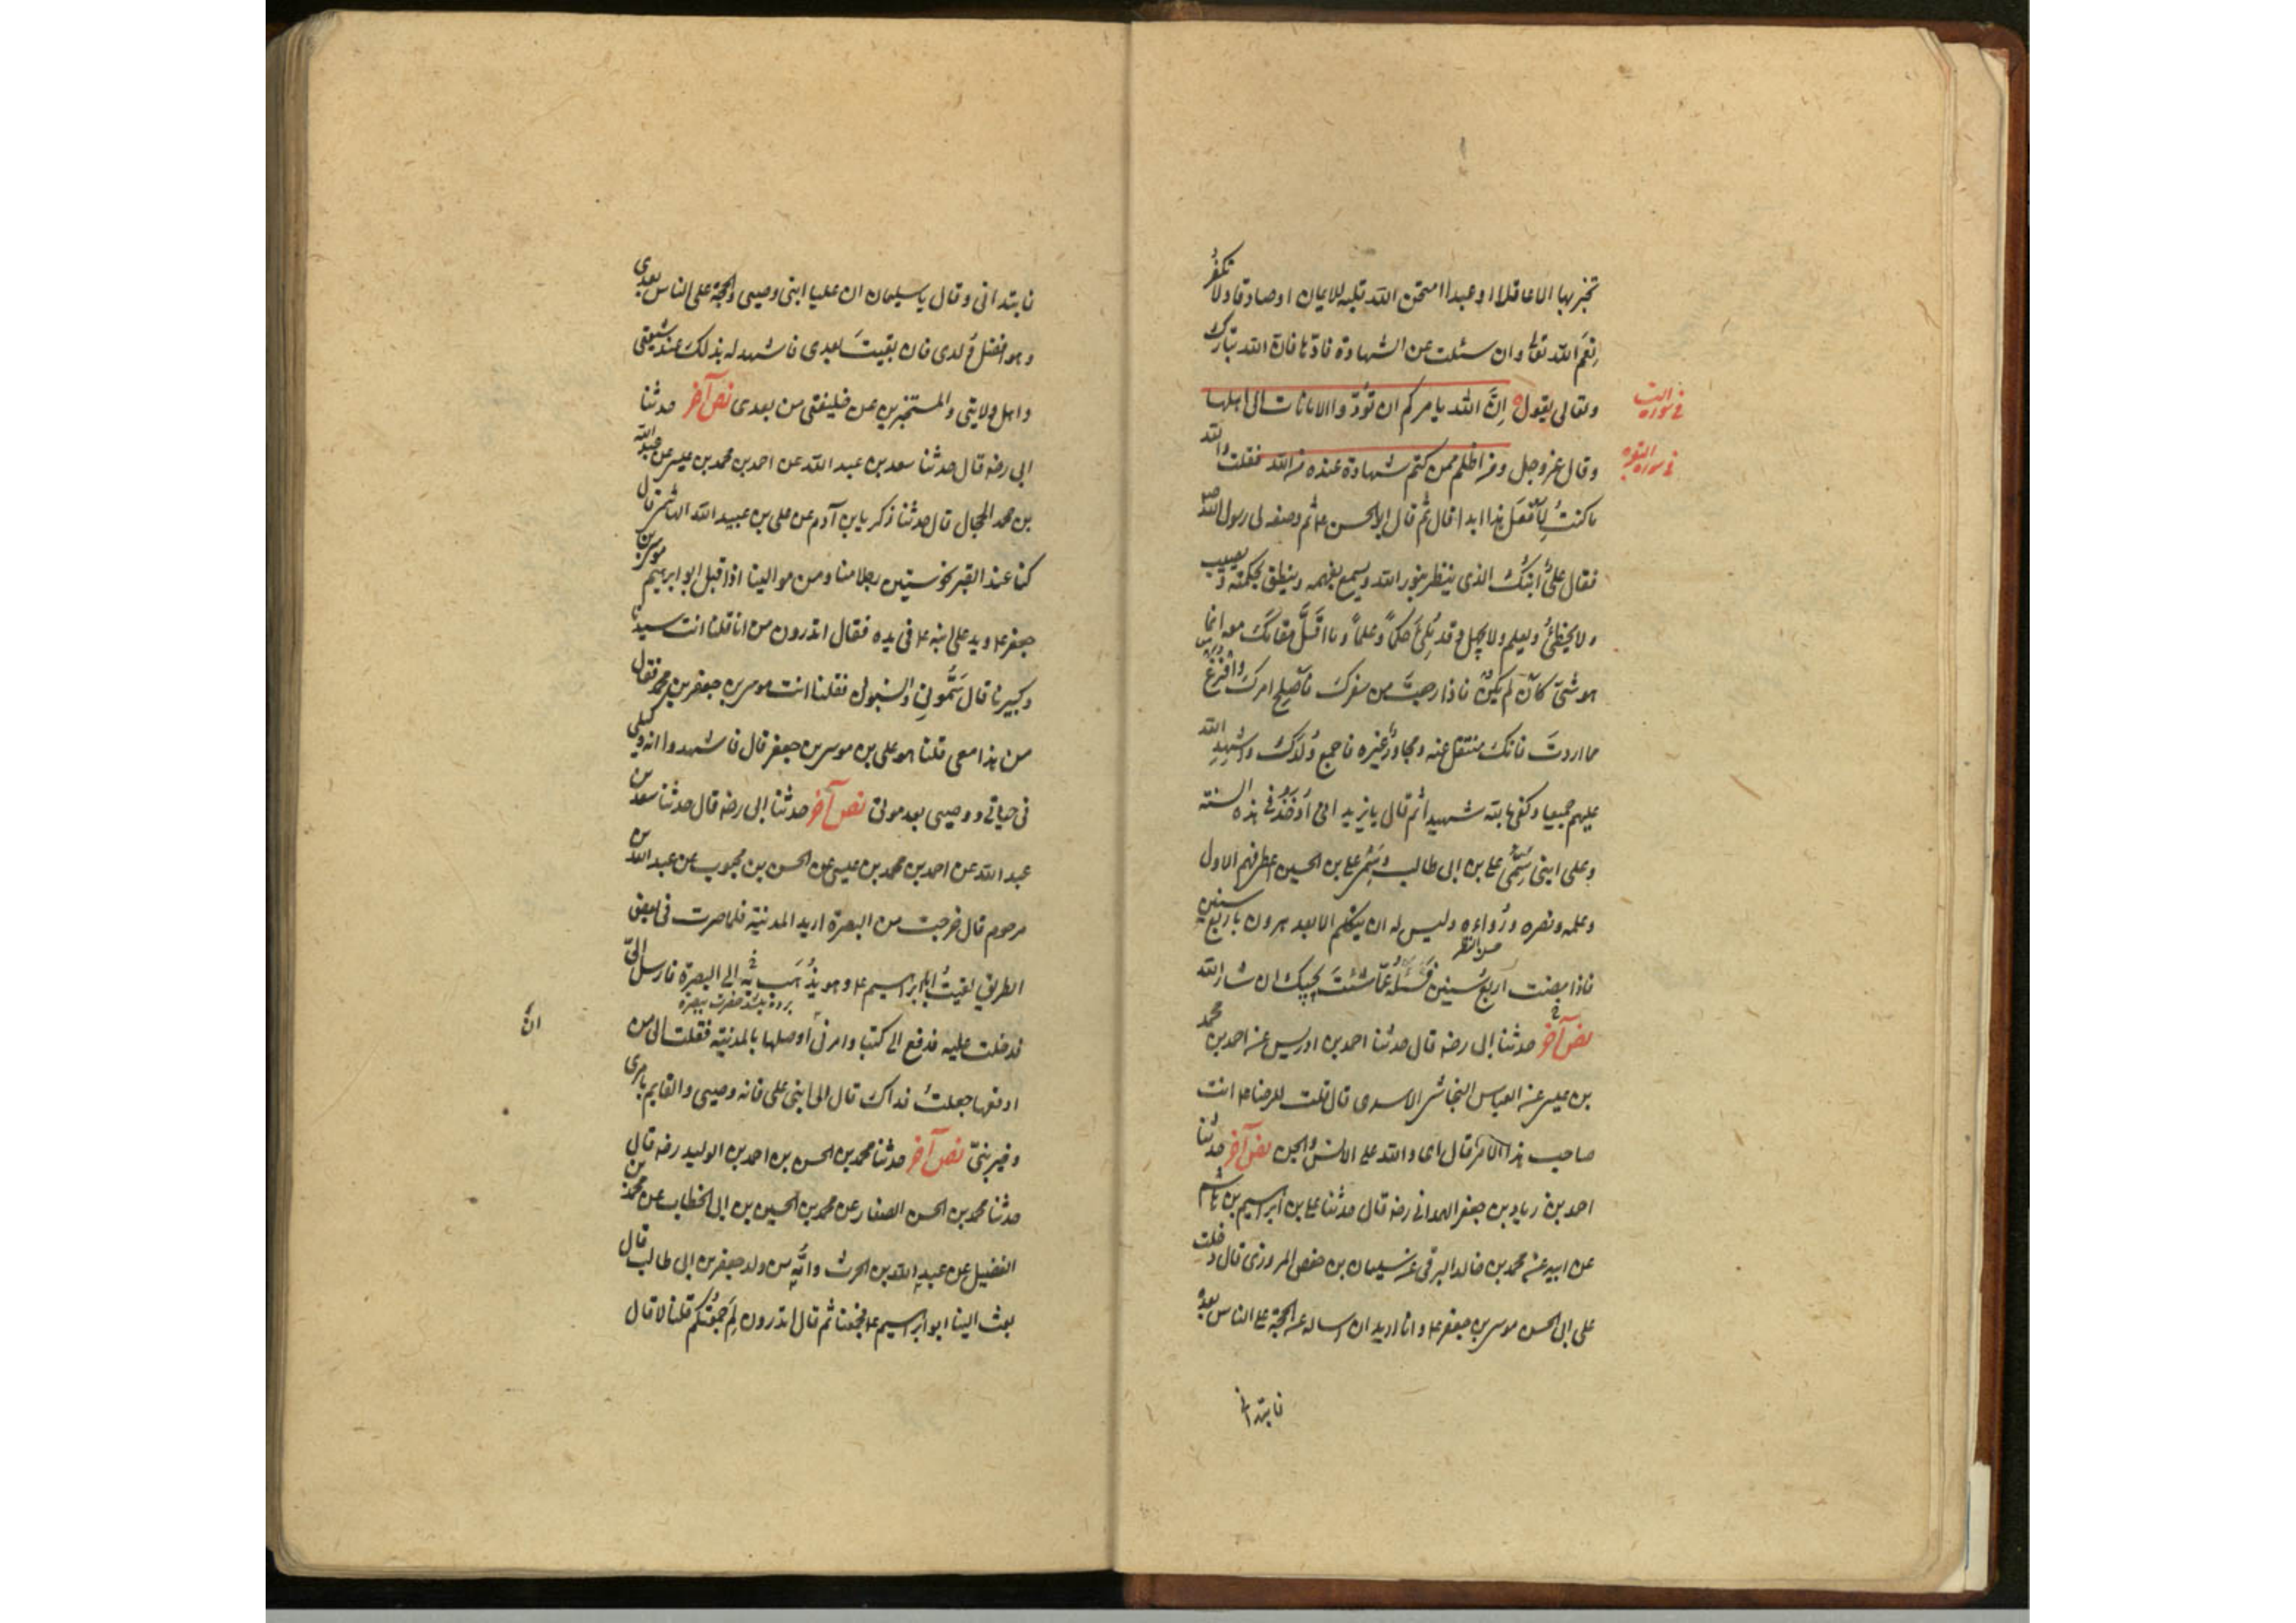 تخبر بها الا عاقلا او عبدا امتحن الله قلبه للايمان او صادقا ولا تكفر
نِعَمَ الله تعالى وان سئلت عن الشهادة فادّها فان الله تبارك
وتعالى يقول اِنَّ الله يامركم ان تؤدّوا الامانات الى اهلها
فى سورة النساء
وقال عز وجل ومن اظلم ممن كتم شهادة عنده من الله فقلت والله
فى سورة البقرة
ما كنتُ لِأَفْعَلَ هذا ابدا قال ثم قال ابو الحسن ع ثم وصفه لى رسول الله ص
فقال علىٌّ ابنُكَ الذى ينظر بنور الله ويسمع بفهمه وينطق بحكمته ويصيب
ولا يخطئُ ويعلم ولا يجهل وقد مُلِئَ حكماً وعلماً وما اَقَلَّ مقامَكَ معه انما
هو شئ كَاَنْ لم يكن فاذا رجعتَ من سفرك فَاَصْلِح امرك وافرغ
مما اردتَ فانك منتقل عنه ومجاور غيره فاجمع وُلْدَكَ واَشْهِدِ الله
عليهم جميعا وكفى بالله شهيدا ثم قال يا يزيد انى اُوخَذُ فى هذه السنة
وعلى ابنى سَمِىُّ على بن ابى طالب وسَمِىُّ على بن الحسين اعطى فهم الاول
وعلمه ونصره ورُواءه وليس له ان يتكلم الا بعد هرون باربع سنين
حسن المنظر
فاذا مضت اربعُ سنين فَسَلْهُ عمّا شئتَ يجيبك ان شاء الله
نص آخر حدثنا ابى رضه قال حدثنا احمد بن ادريس عن احمد بن محمد
بن عيسى عن العباس النجاشى الاسدى قال قلت للرضا ع انت
صاحب هذا الامر قال اى والله على الانس والجن نص آخر حدثنا
احمد بن زياد بن جعفر الهمدانى رضه قال حدثنا على بن ابراهيم بن هاشم
عن ابيه عن محمد بن خالد البرقى عن سليمان بن حفص المروزى قال دخلت
على ابى الحسن موسى بن جعفر ع وانا اريد ان اساله عن الحجة على الناس بعده
فابتدانى
فابتدانى وقال يا سليمان ان عليا ابنى ووصيى والحجة على الناس بعدى
وهو افضل وُلدى فان بقيتَ بعدى فاشهد له بذلك عند شيعتى
واهل ولايتى والمستخبرين عن خليفتى من بعدى نص آخر حدثنا
ابى رضه قال حدثنا سعد بن عبد الله عن احمد بن محمد بن عيسى عن عبد الله
بن محمد الحجال قال حدثنا زكريا بن آدم عن على بن عبيد الله الهاشمى قال
كنا عند القبر نحو ستين رجلا منا ومن موالينا اذ اقبل ابو ابرهيم موسى بن
جعفر ع ويد على ابنه ع فى يده فقال اتدرون من انا قلنا انت سيدنا
وكبيرنا قال سَمُّونِى وانسبونى فقلنا انت موسى بن جعفر بن محمد فقال
من هذا معى قلنا هو على بن موسى بن جعفر قال فاشهدوا انه وكيلى
فى حياتى ووصيى بعد موتى نص آخر حدثنا ابى رضه قال حدثنا سعد بن
عبد الله عن احمد بن محمد بن عيسى عن الحسن بن محبوب عن عبد الله بن
مرحوم قال خرجت من البصرة اريد المدينة فلما صرت فى بعض
الطريق لقيتُ ابا ابراهيم ع وهو يُذْهَب به الى البصرة فارسل الىّ
فدخلت عليه فدفع الى كتبا وامرنى اَن اوصلها بالمدينة فقلت الى من
ادفعها جعلتُ فداك قال الى ابنى على فانه وصيى والقايم بامرى
وخير بنىّ نص آخر حدثنا محمد بن الحسن بن احمد بن الوليد رضه قال
حدثنا محمد بن الحسن الصفار عن محمد بن الحسين بن ابى الخطاب عن محمد بن
الفضيل عن عبد الله بن الحرث وامُّه من ولد جعفر بن ابى طالب قال
بعث الينا ابو ابراهيم ع فجمعنا ثم قال اتدرون لِمَ جمعتُكم قلنا لا قال